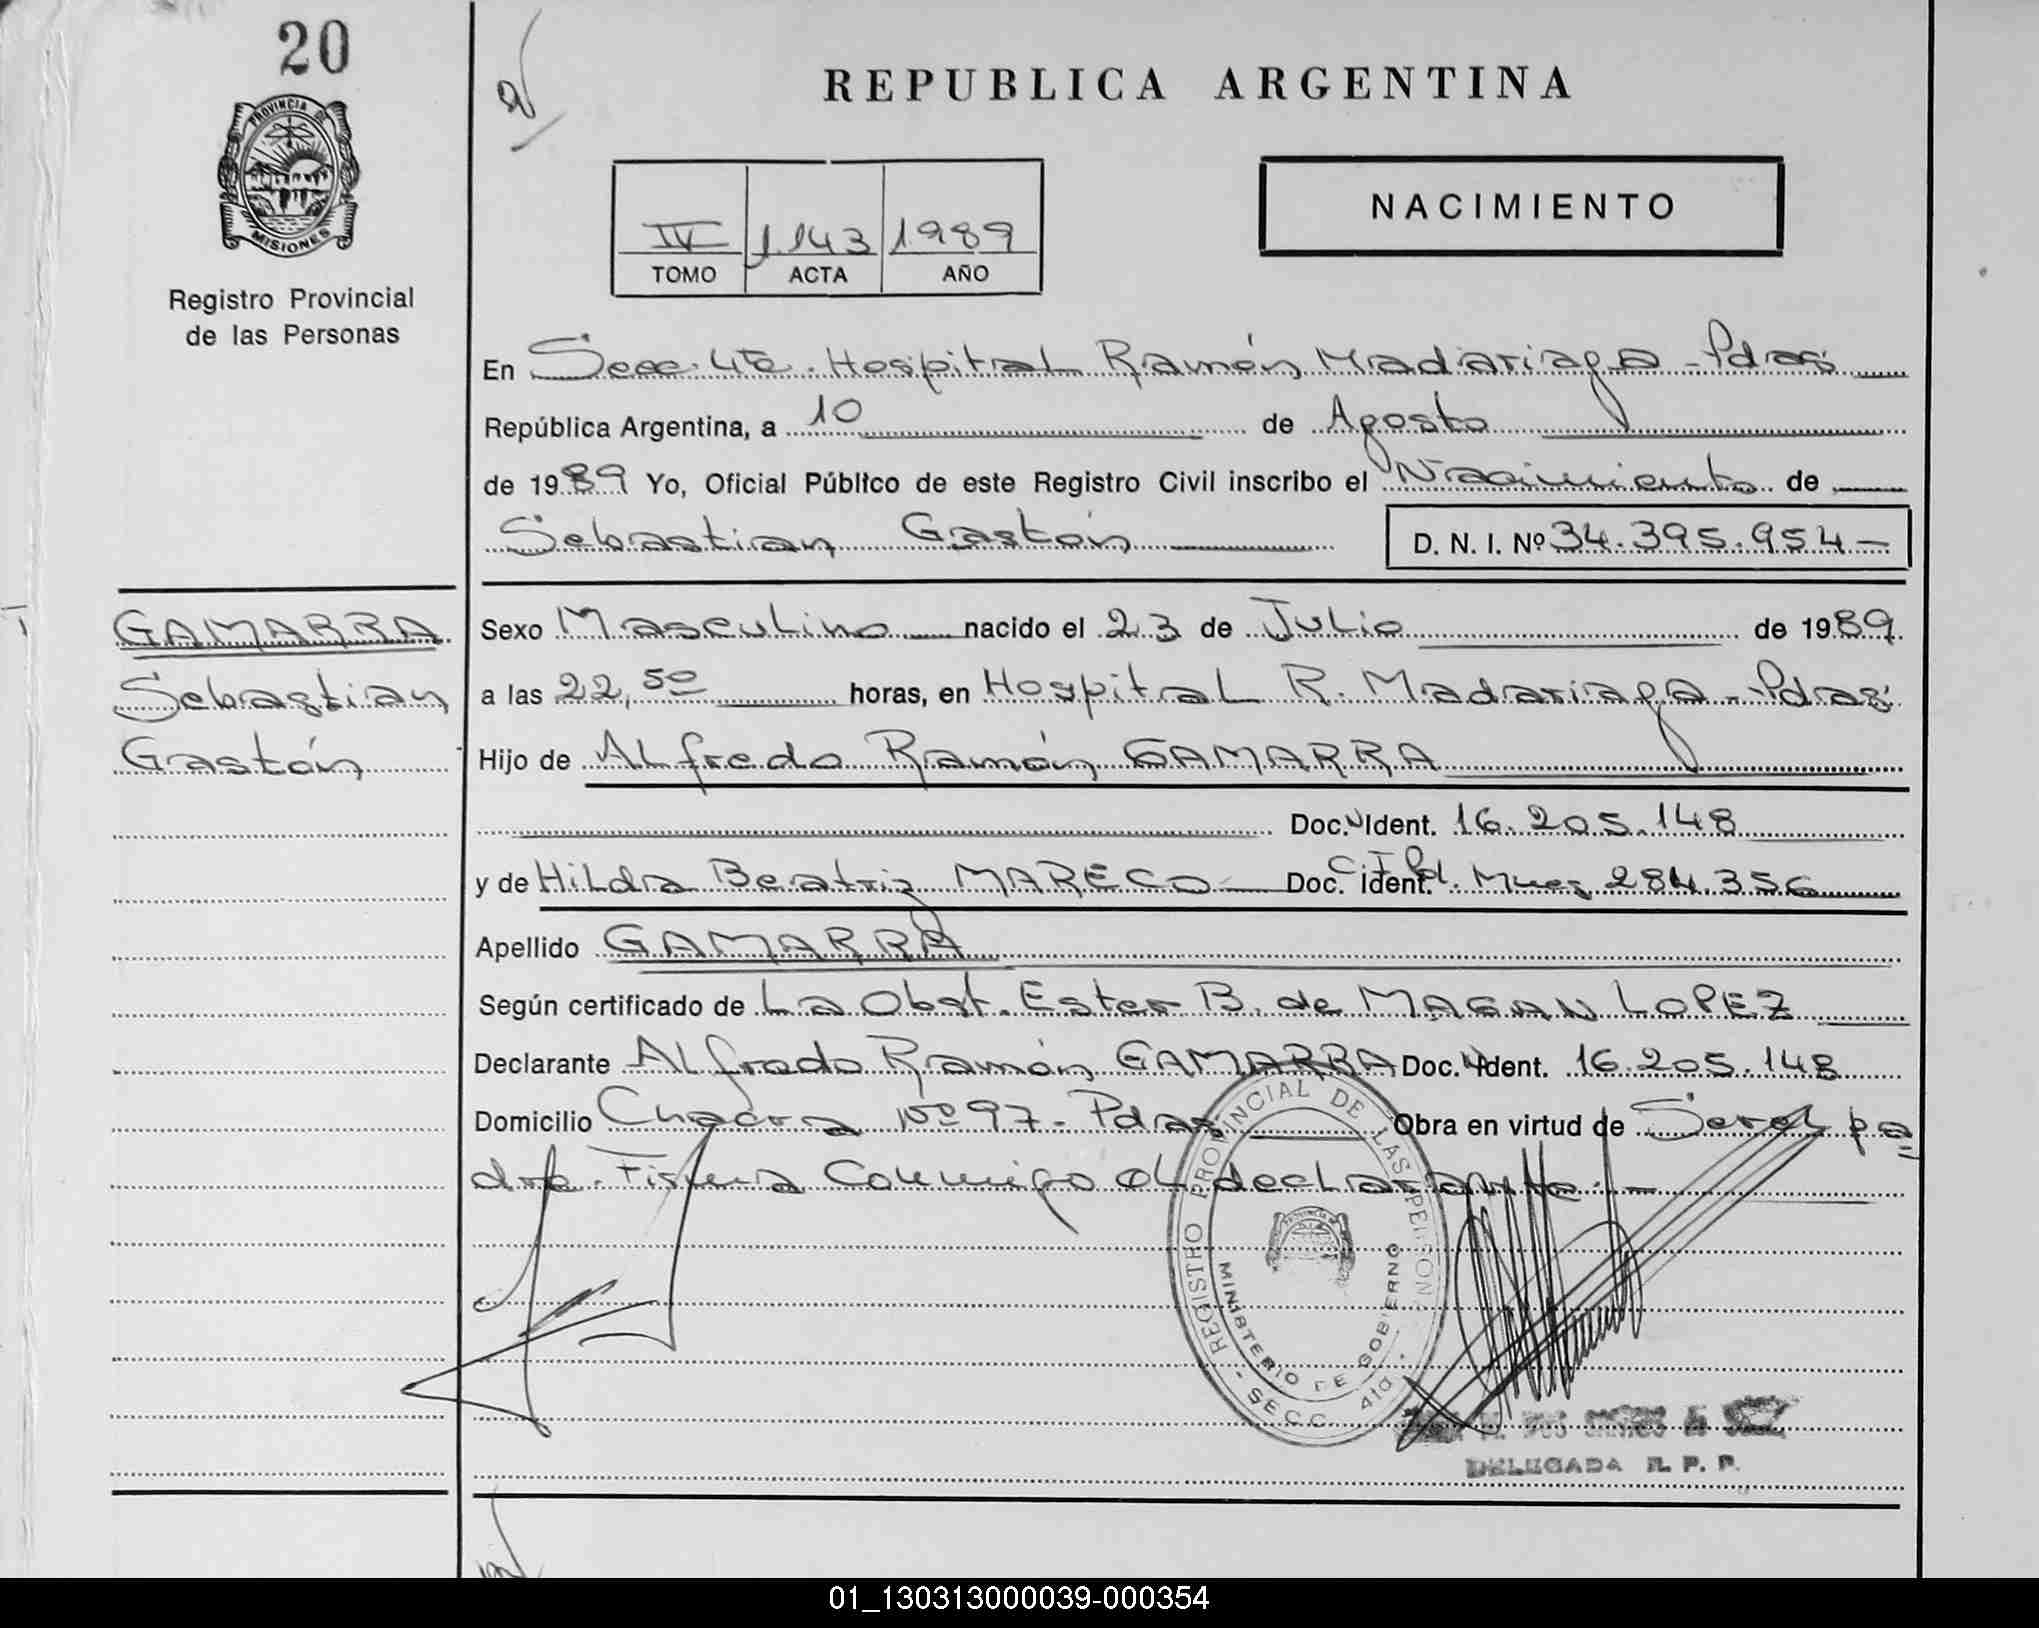 20
PROVINCIA DE
MISIONES
Registro Provincial
de las Personas
REPUBLICA ARGENTINA
NACIMIENTO
IV 1.143 1989
TOMO ACTA AÑO
En Secc. 4ta. Hospital Ramón Madariaga - Pdas
República Argentina, a 10 de Agosto
de 1989 Yo, Oficial Público de este Registro Civil inscribo el Nacimiento de
Sebastian Gastón D. N. I. Nº 34.395.954 -
GAMARRA
Sebastian
Gastón
Sexo Masculino nacido el 23 de Julio de 1989.
a las 22,50 horas, en Hospital R. Madariaga - Pdas.
Hijo de Alfredo Ramón GAMARRA
Doc. Ident. 16.205.148
y de Hilda Beatriz MARECO Doc. Ident. C.I. Pol. Mnes 284.356
Apellido GAMARRA
Según certificado de La Obst. Ester B. de MAGAN LOPEZ
Declarante Alfredo Ramón GAMARRA Doc. Ident. 16.205.148
Domicilio Chacra Nº 97 - Pdas Obra en virtud de Ser el pa-
dre. Firma Conmigo el declarante. -
REGISTRO PROVINCIAL DE LAS PERSONAS
MINISTERIO DE GOBIERNO
- SECC. 4ta -
DELEGADA R. P. P.
01_130313000039-000354